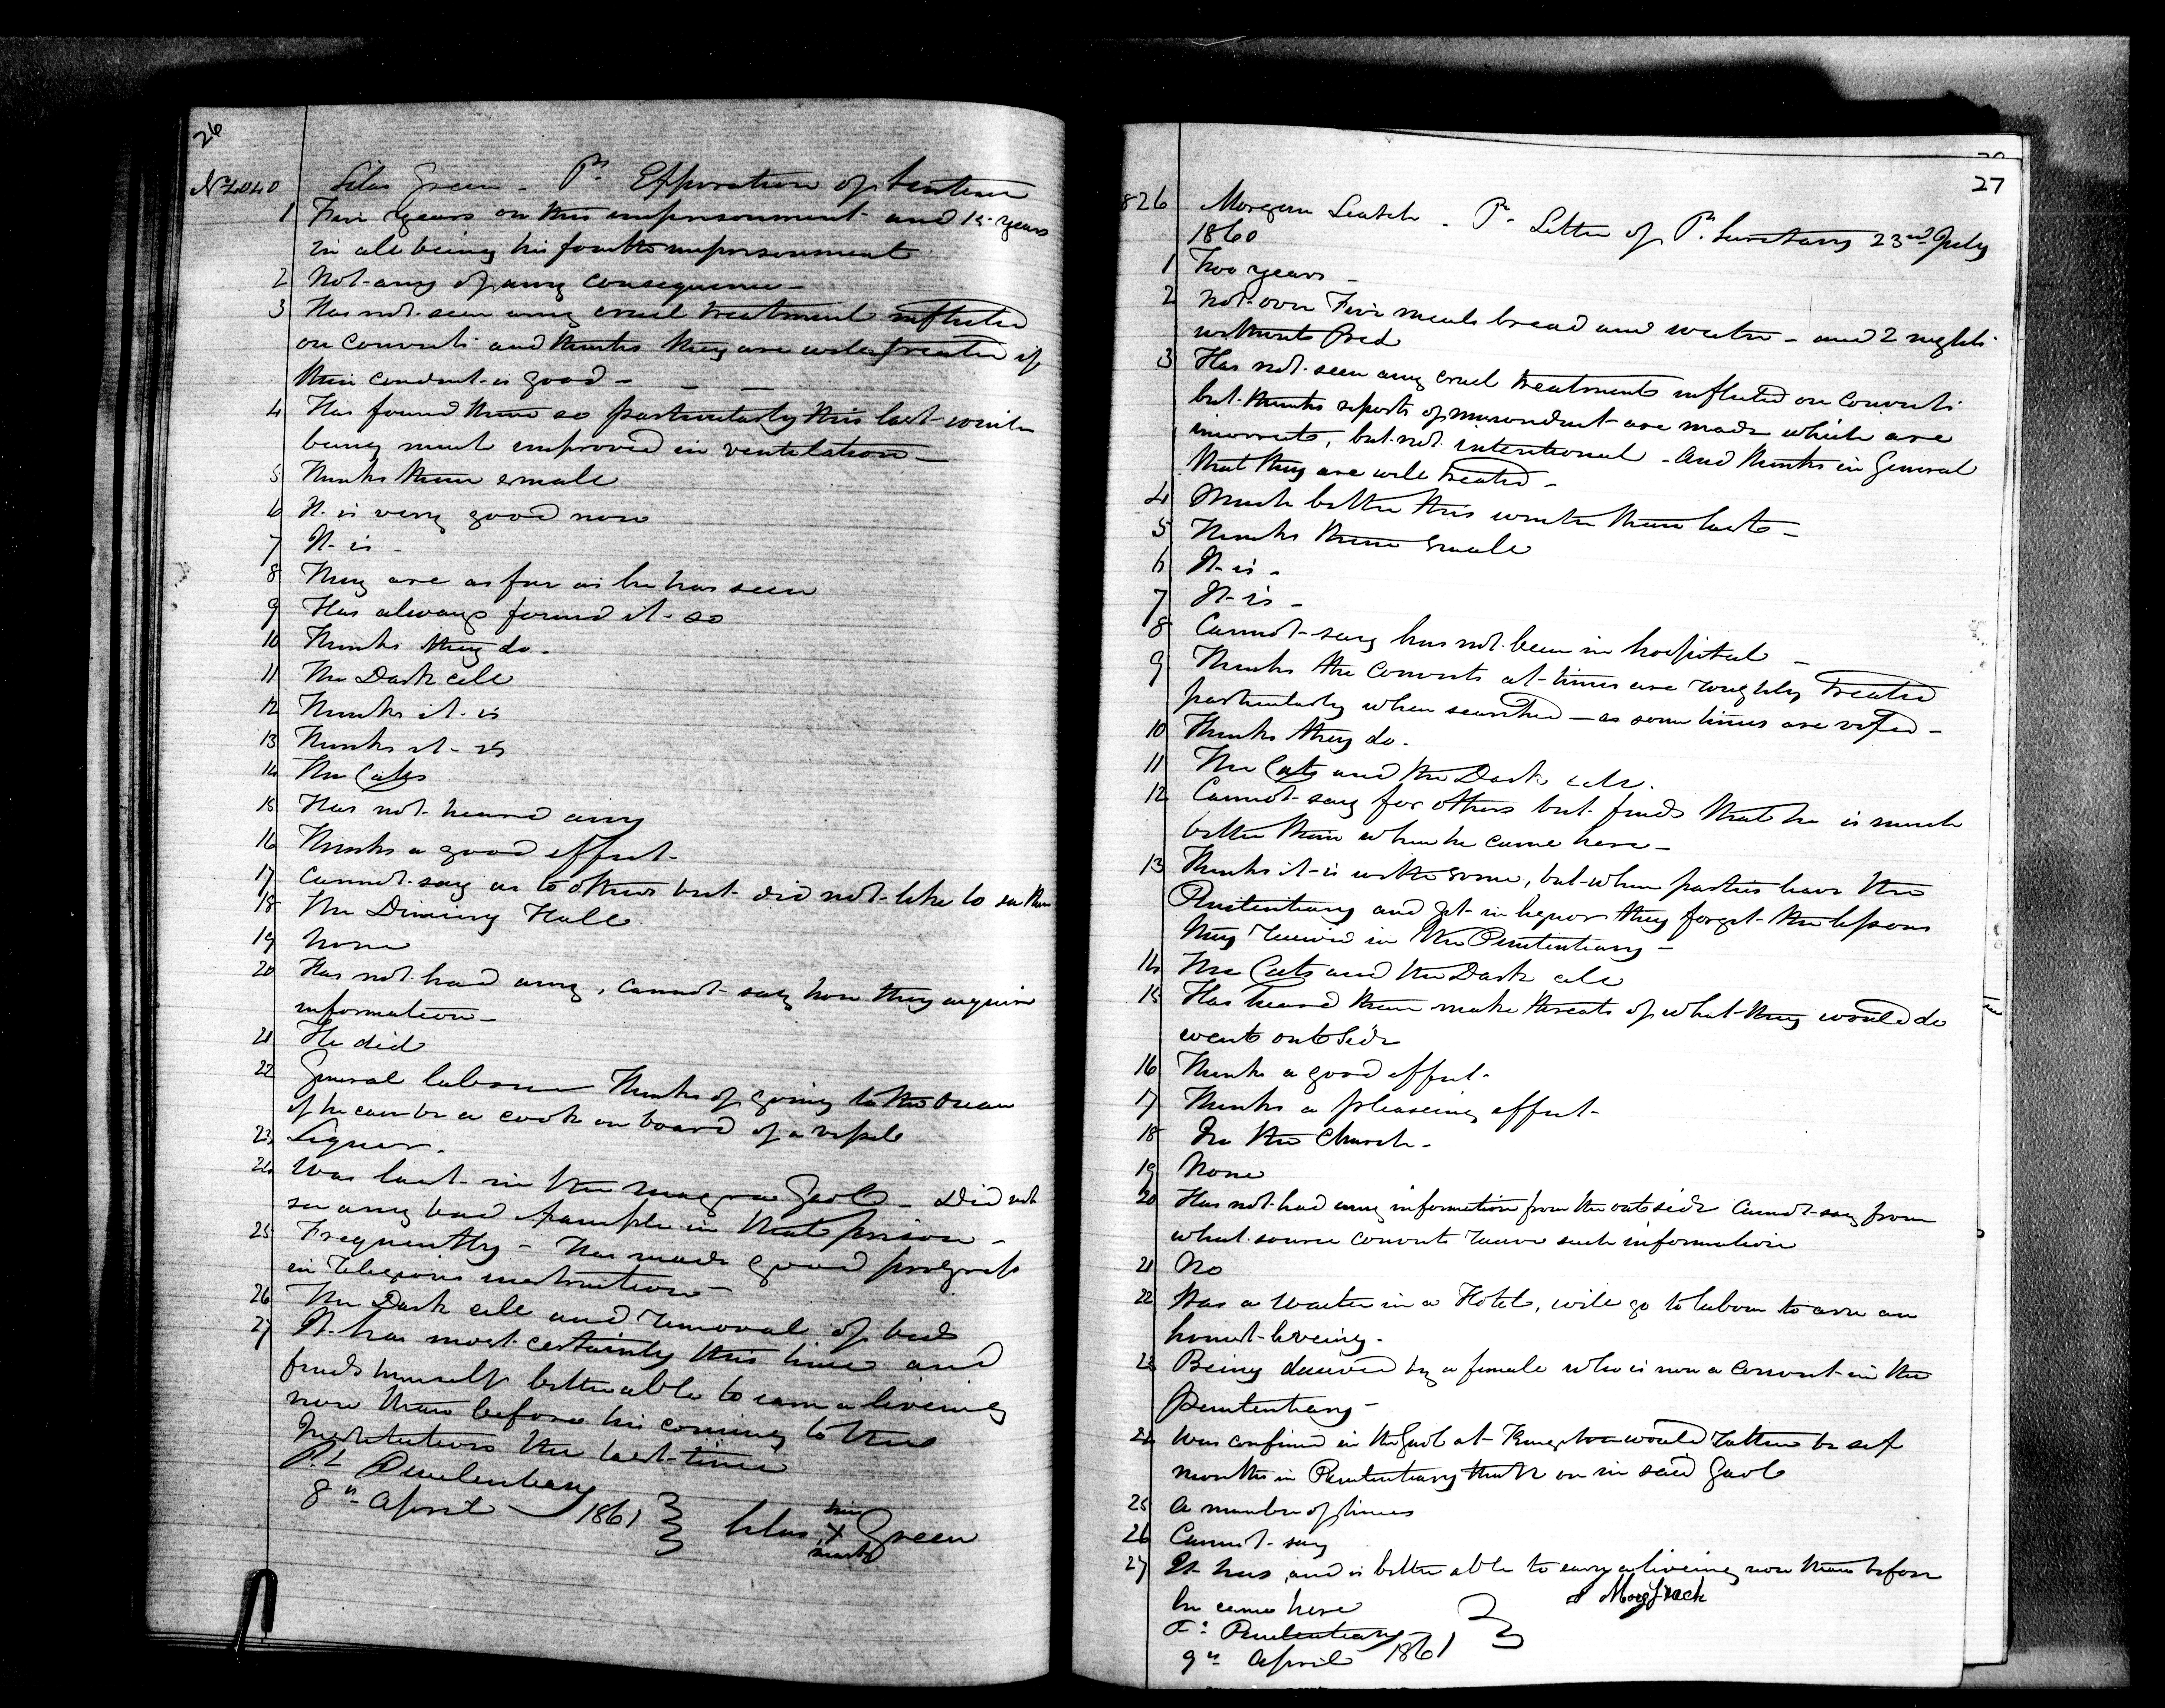 26
No 4040 Silas Green - Pr Expiration of Sentence
1 Five years on this imprisonment and 14 years
in all being his fourth imprisonment
2 Not any of any consequence -
3 Has not seen any cruel treatment inflicted
on Convicts and thinks they are well treated if
their conduct is good -
4 Has found them so particularly this last winter
being much improved in ventilation -
5 Thinks them small
6 It is very good now
7 It is -
8 They are as far as he has seen
9 Has always found it so
10 Thinks they do.
11 The Dark cell
12 Thinks it is
13 Thinks it is
14 The Cats
15 Has not heard any
16 Thinks a good effect
17 Cannot say as to others but did not like to see them
18 The Dining Hall
19 None
20 Has not had any, cannot say how they acquire
information -
21 He did
22 General labourer Thinks of going to the Ocean
if he can be a cook on board of a vessel
23 Liquor.
24 Was last in the Gaol - Did not
see any bad example in that prison -
25 Frequently - Has made good progress
in religious instruction -
26 The Dark cell and removal of bed
27 It has most certainly this time and
finds himself better able to earn a liveing
now than before his coming to this
Institution the last time
P.L Penitentiary
8th April 1861 Silas his X mark Green
27
826 Morgan Leatch - Pr Letter of P. Secretary 23rd July
1860
1 Two years -
2 Not over Five meals bread and water - and 2 nights
without bed
3 Has not seen any cruel treatment inflicted on Convicts
but thinks reports of misconduct are made which are
incorrect, but not intentional - And thinks in General
that they are well treated -
4 Much better this winter than last -
5 Thinks them small
6 It is -
7 It is -
8 Cannot say has not been in hospital -
9 Thinks the Convicts at times are roughly treated
particularly when searched - as some times are -
10 Thinks they do.
11 The Cats and the Dark cell.
12 Cannot say for others but finds that he is much
better than when he came here -
13 Thinks it is with some, but when parties leave the
Penitentiary and get in liquor they forget the lessons
they received in the Penitentiary -
14 The Cats and the Dark cell
15 Has heard them make threats of what they would do
went outside
16 Thinks a good effect -
17 Thinks a pleaseing effect -
18 In the Church -
19 None
20 Has not had any information from the outside Cannot say from
what source convicts receive such information
21 No
22 Was a waiter in a Hotel, will go to labour to arn an
honest liveing -
23 Being deceived by a female who is now a Convict in the
Penitentiary -
24 Was confined in the Gaol at Kingston would rather be six
months in Penitentiary than on in said Gaol
25 A number of times
26 Cannot say
27 It has, and is better able to earn a liveing now than before
he came here
P. Penitentiary
9th April 1861